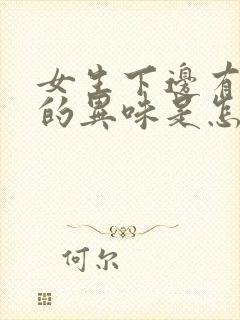 女生下邊有
的異味是怎
何尔